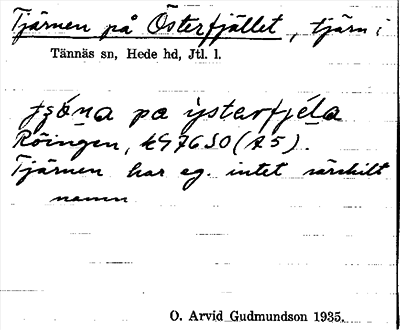 Tjärnen på Österfjället, tjärn i
Tännäs sn, Hede hd, Jtl. l.
pa ysterfjéla
Röingen, k476SO(A5).
Tjärnen har eg. intet särskilt
namn
O. Arvid Gudmundson 1935.